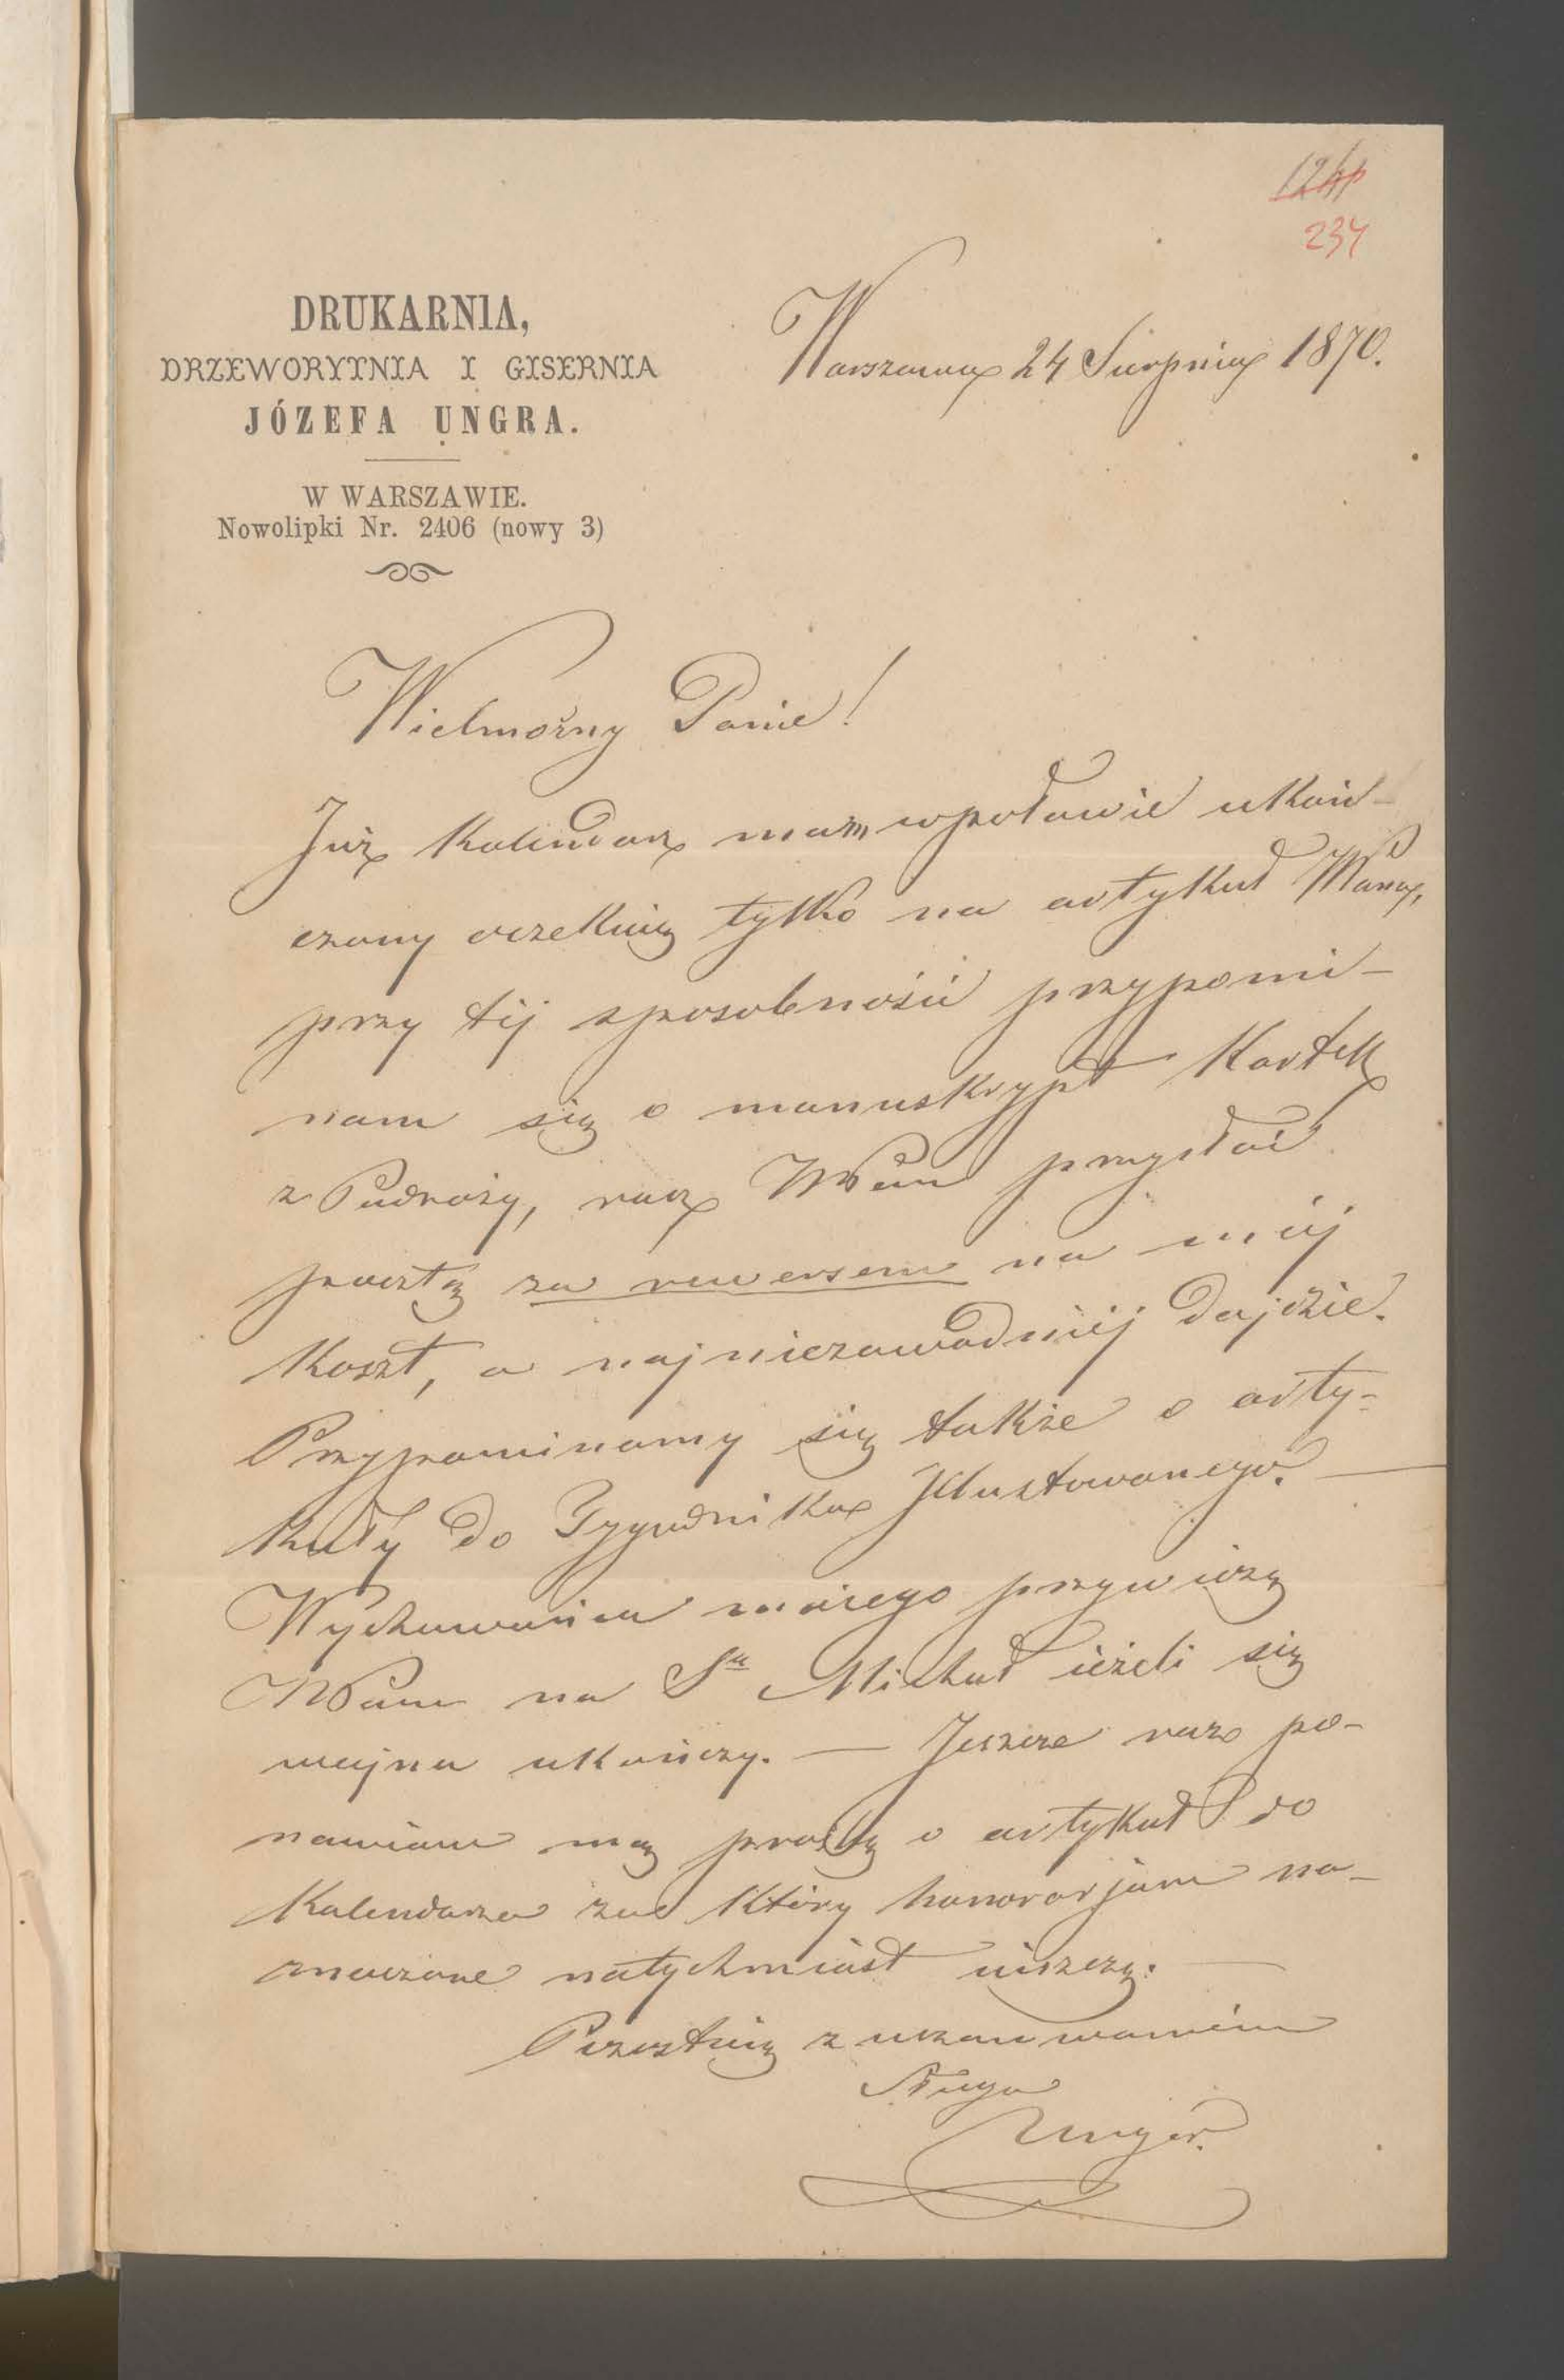 1241
234
DRUKARNIA,
DRZEWORYTNIA I GISERNIA
JÓZEFA UNGRA.
W WARSZAWIE.
Nowolipki Nr. 2406 (nowy 3)
Warszawa 24 Sierpnia 1870.
Wielmożny Panie!
Już Kalendarz mam wpołowie ukoń-
czony oczekuię tylko na artykuł Pana,
przy téj sposobności przypomi-
nam się o manuskrypt Kartek
z Podroży, racz WPan przysłać
pocztą za rewersem na mój
koszt, a najniezawodniéj dojdzie.
Przypominamy się także o arty-
kuły do Tygodnika Illustowanego. —
Wychowańca mojego przywiozę
WPanu na Sn Michał ieżeli się
wojna ukończy. — Jeszcze raz po-
nawiam mą prośbę o artykuł do
Kalendarza za który honorarjum na-
znaczone natychmiast uiszczę. —
Pozostaię z uszanowaniem
Sługa
Unger.